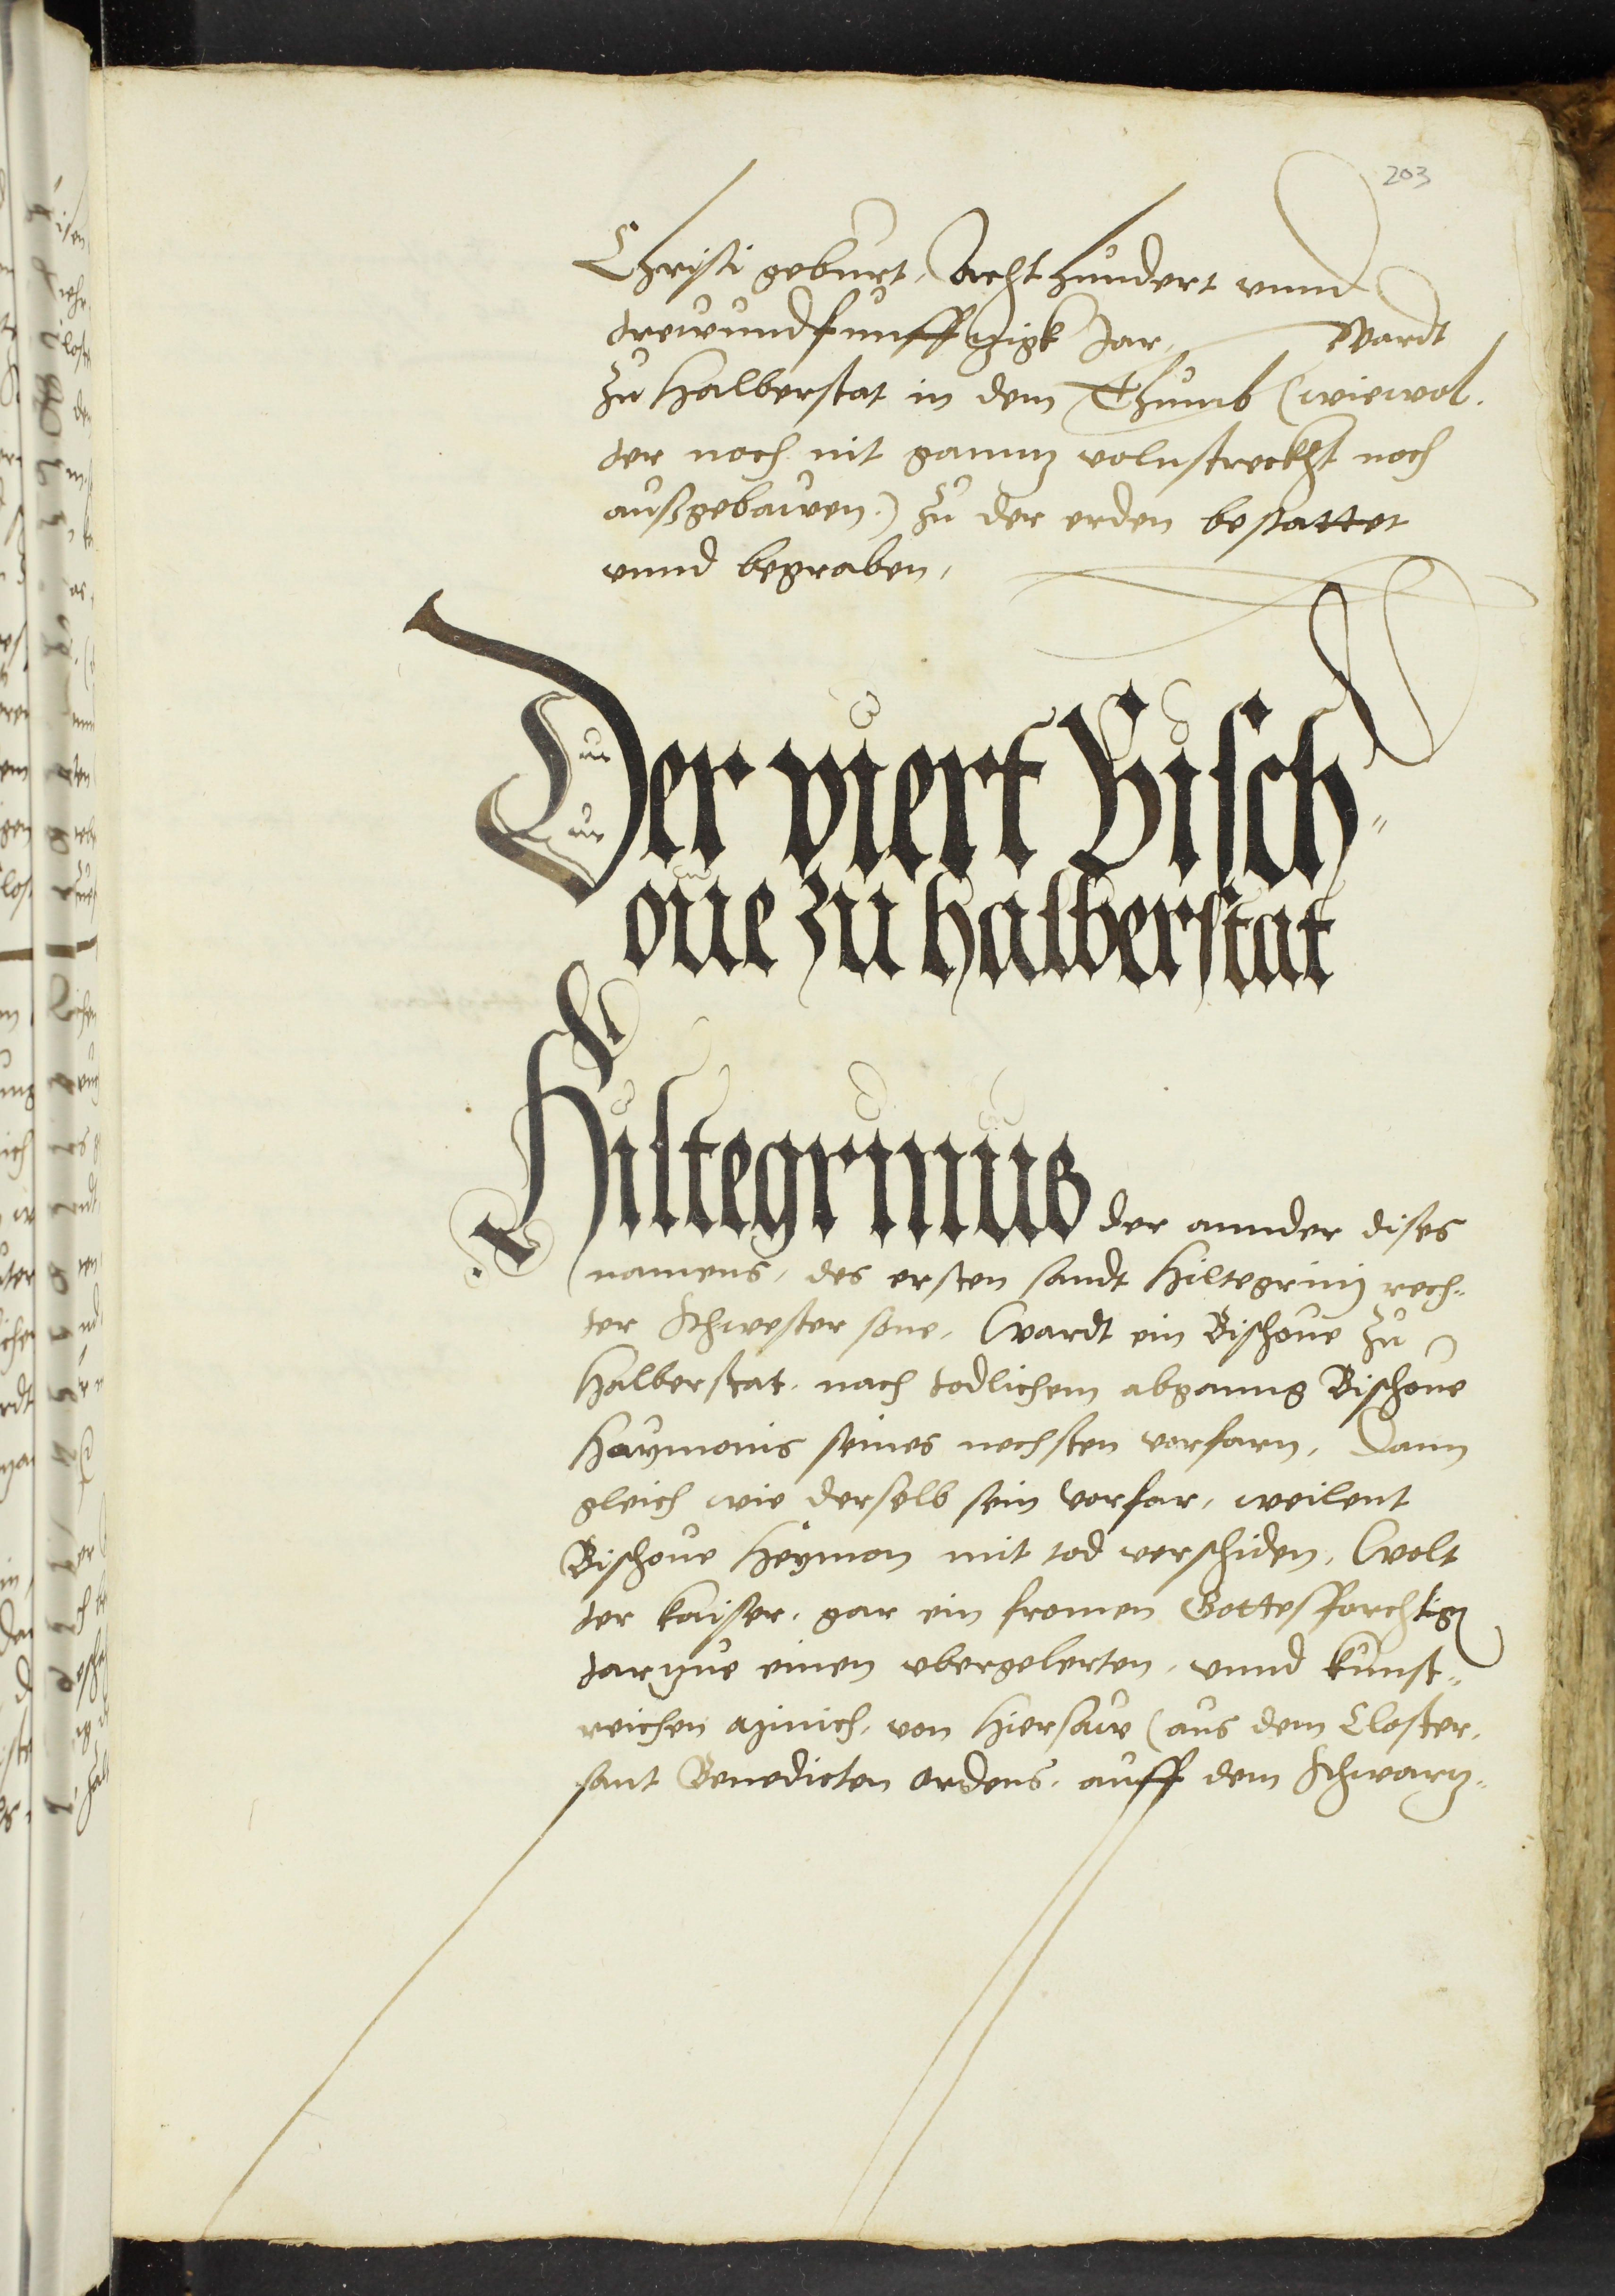 203
Christi geburt, Acht hundert vnnd
dreivundfunffzigk Jar, Wardt
zu Halberstat in dem Thumb (wiewol
der noch nit ganntz volnstreckht noch
außgebawen) zu der erden bestattet
vnnd begraben,
Der viert Bisch-
oue zu halberstat
Hiltegrimus der annder dises
namens, des ersten sandt Hiltegrinj rech-
ter Schwester sone, Wardt ein Bischoue zu
Halberstat, nach todlichem abganng Bischoue
Haymonis seines nechsten vorfarn, Dann
gleich wie derselb sein vorfar, weilent
Bischoue Heymon mit tod verschiden, Wolt
der kaiser, gar ein fromen Gottesforchtigen
darzue einen vbergelerten, vnnd kunst-
reichen von Hiersaw (aus dem Closter,
sant Benedicten Ordens, auff dem Schwartz-